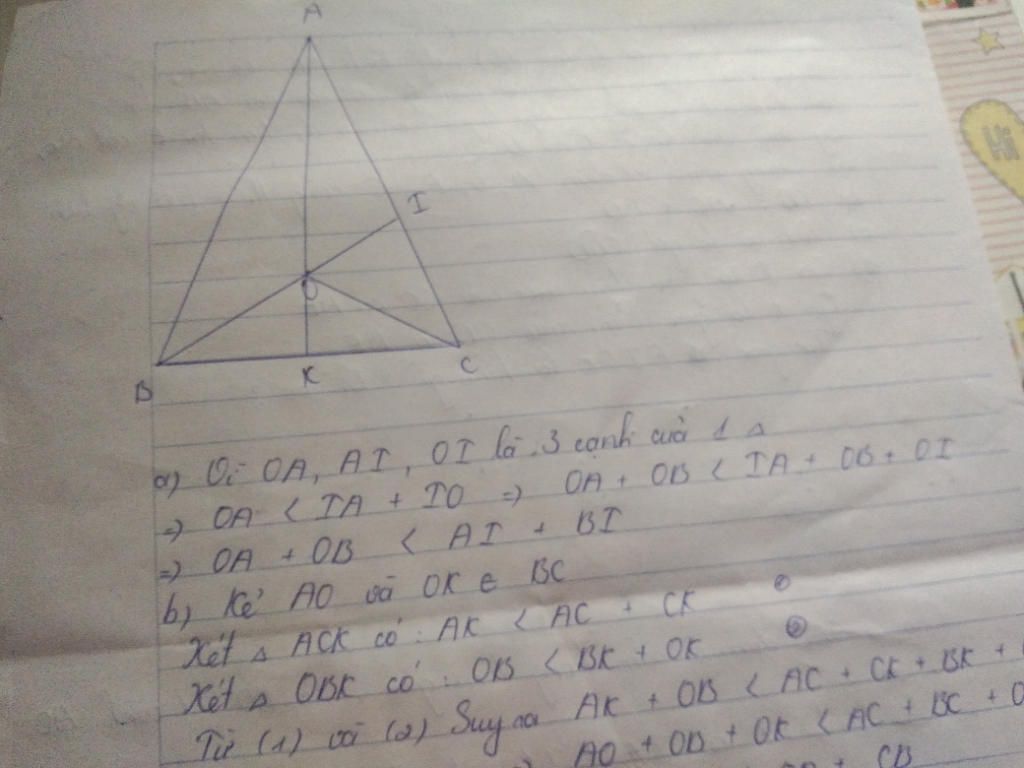 A
Hi
I
O
B
K
C
a) Vì OA, AI, OI là 3 cạnh của 1 △
=> OA < IA + IO => OA + OB < IA + OB + OI
=> OA + OB < AI + BI
b) Kẻ AO và OK ∈ BC
Xét △ ACK có : AK < AC + CK
Xét △ OBK có : OB < BK + OK
Từ (1) và (2) Suy ra AK + OB < AC + CK + BK +
AO + OB + OK < AC + BC +
CB